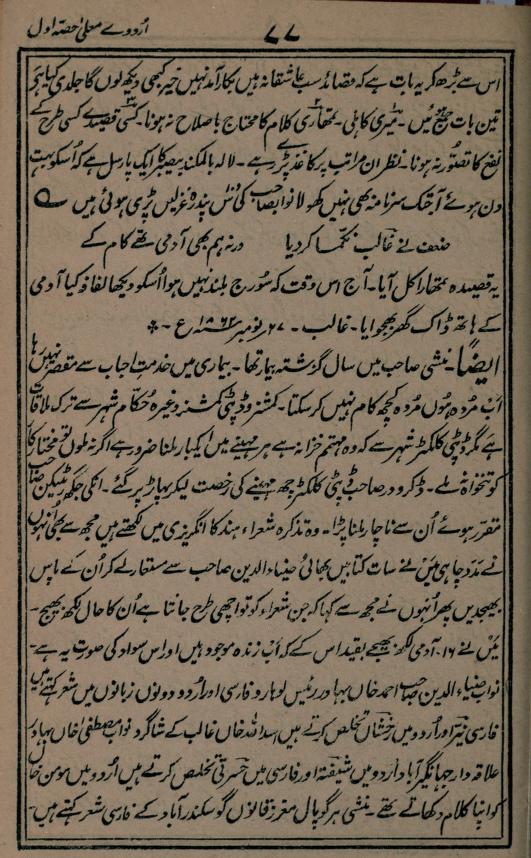 اُردوے معلیٰ حصّہ اول
۷۷
اس سے بڑھ کر یہ بات ہے کہ قصائد سب عاشقانہ ہیں بکار آمد نہیں خیر کبھی دیکھ لوں گا جلدی کیا ہے
تین بات جمع ہیں۔ میری کاہلی۔ تمھاری کلام کا محتاج باصلاح نہ ہونا۔ کسی قصیدے سے کسی طرح کے
نفع کا تصوّر نہ ہونا۔ نظر ان مراتب پر کاغذ پڑے رہے۔ لالہ بالمکند بیصبر کا ایک پارسل ہے کہ اُسکو بہت
دن ہوئے آجتک سرنامہ بھی نہیں کھولا نواب صاحب کی دس پندرہ غزلیں پڑی ہوئی ہیں
ضعف نے غالب نکمّا کر دیا ورنہ ہم بھی آدمی تھے کام کے
یہ قصیدہ تمھارا کل آیا۔ آج اس وقت کہ سورج بلند نہیں ہوا اُسکو دیکھا لفافہ کیا آدمی
کے ہاتھ ڈاک گھر بھجوایا۔ غالب۔ ۲۷ نومبر ۱۸۶۲ع
ایضاً۔ منشی صاحب میں سال گزشتہ بیمار تھا۔ بیماری میں خدمت احباب سے مقصر نہیں رہا
اب مُردہ ہوں مُردہ کچھ کام نہیں کر سکتا۔ کمشنر و ڈپٹی کمشنر وغیرہ حکّام شہر سے ترک ملاقات
ہے مگر ڈپٹی کلکٹر شہر سے کہ وہ مہتمم خزانہ ہے ہر مہینے میں ایکبار ملنا ضرور ہے اگر نہ ملوں تو مختار کار
کو تنخواہ نہ ملے۔ ڈکرودر صاحب ڈپٹی کلکٹر چھ مہینے کی رخصت لیکر پہاڑ پر گئے۔ انکی جگھ ریٹیگن صاحب
مقرر ہوئے اُن سے ناچار ملنا پڑا۔ وہ تذکرہ شعراء ہند کا انگریزی میں لکھتے ہیں مجھ سے بھی اُنہوں
نے مدد چاہی میں نے سات کتابیں بھائی ضیاء الدین صاحب سے مستعار لے کر اُن کے پاس
بھیجدیں پھر اُنہوں نے مجھ سے کہا کہ جن شعراء کو تو اچھی طرح جانتا ہے اُن کا حال لکھ بھیج۔
میں نے ۱۶ آدمی لکھ بھیجے بقید اس کے کہ اب زندہ موجود ہیں اور اس سواد کی صورت یہ ہے۔
نواب ضیاء الدین احمد خاں بہادر رئیس لوہارو فارسی اور اُردو دونوں زبانوں میں شعر کہتے ہیں
فارسی نیّر اور اُردو میں رخشاں تخلص کرتے ہیں اسد اللہ خاں غالب کے شاگرد نواب مصطفیٰ خاں بہادر
علاقہ دار جہانگیر آباد اُردو میں شیفتہ اور فارسی میں حسرتی تخلص کرتے ہیں اُردو میں مومن خاں
کو اپنا کلام دکھاتے تھے۔ منشی ہر گوپال معزز قانون گو سکندر آباد کے فارسی شعر کہتے ہیں۔